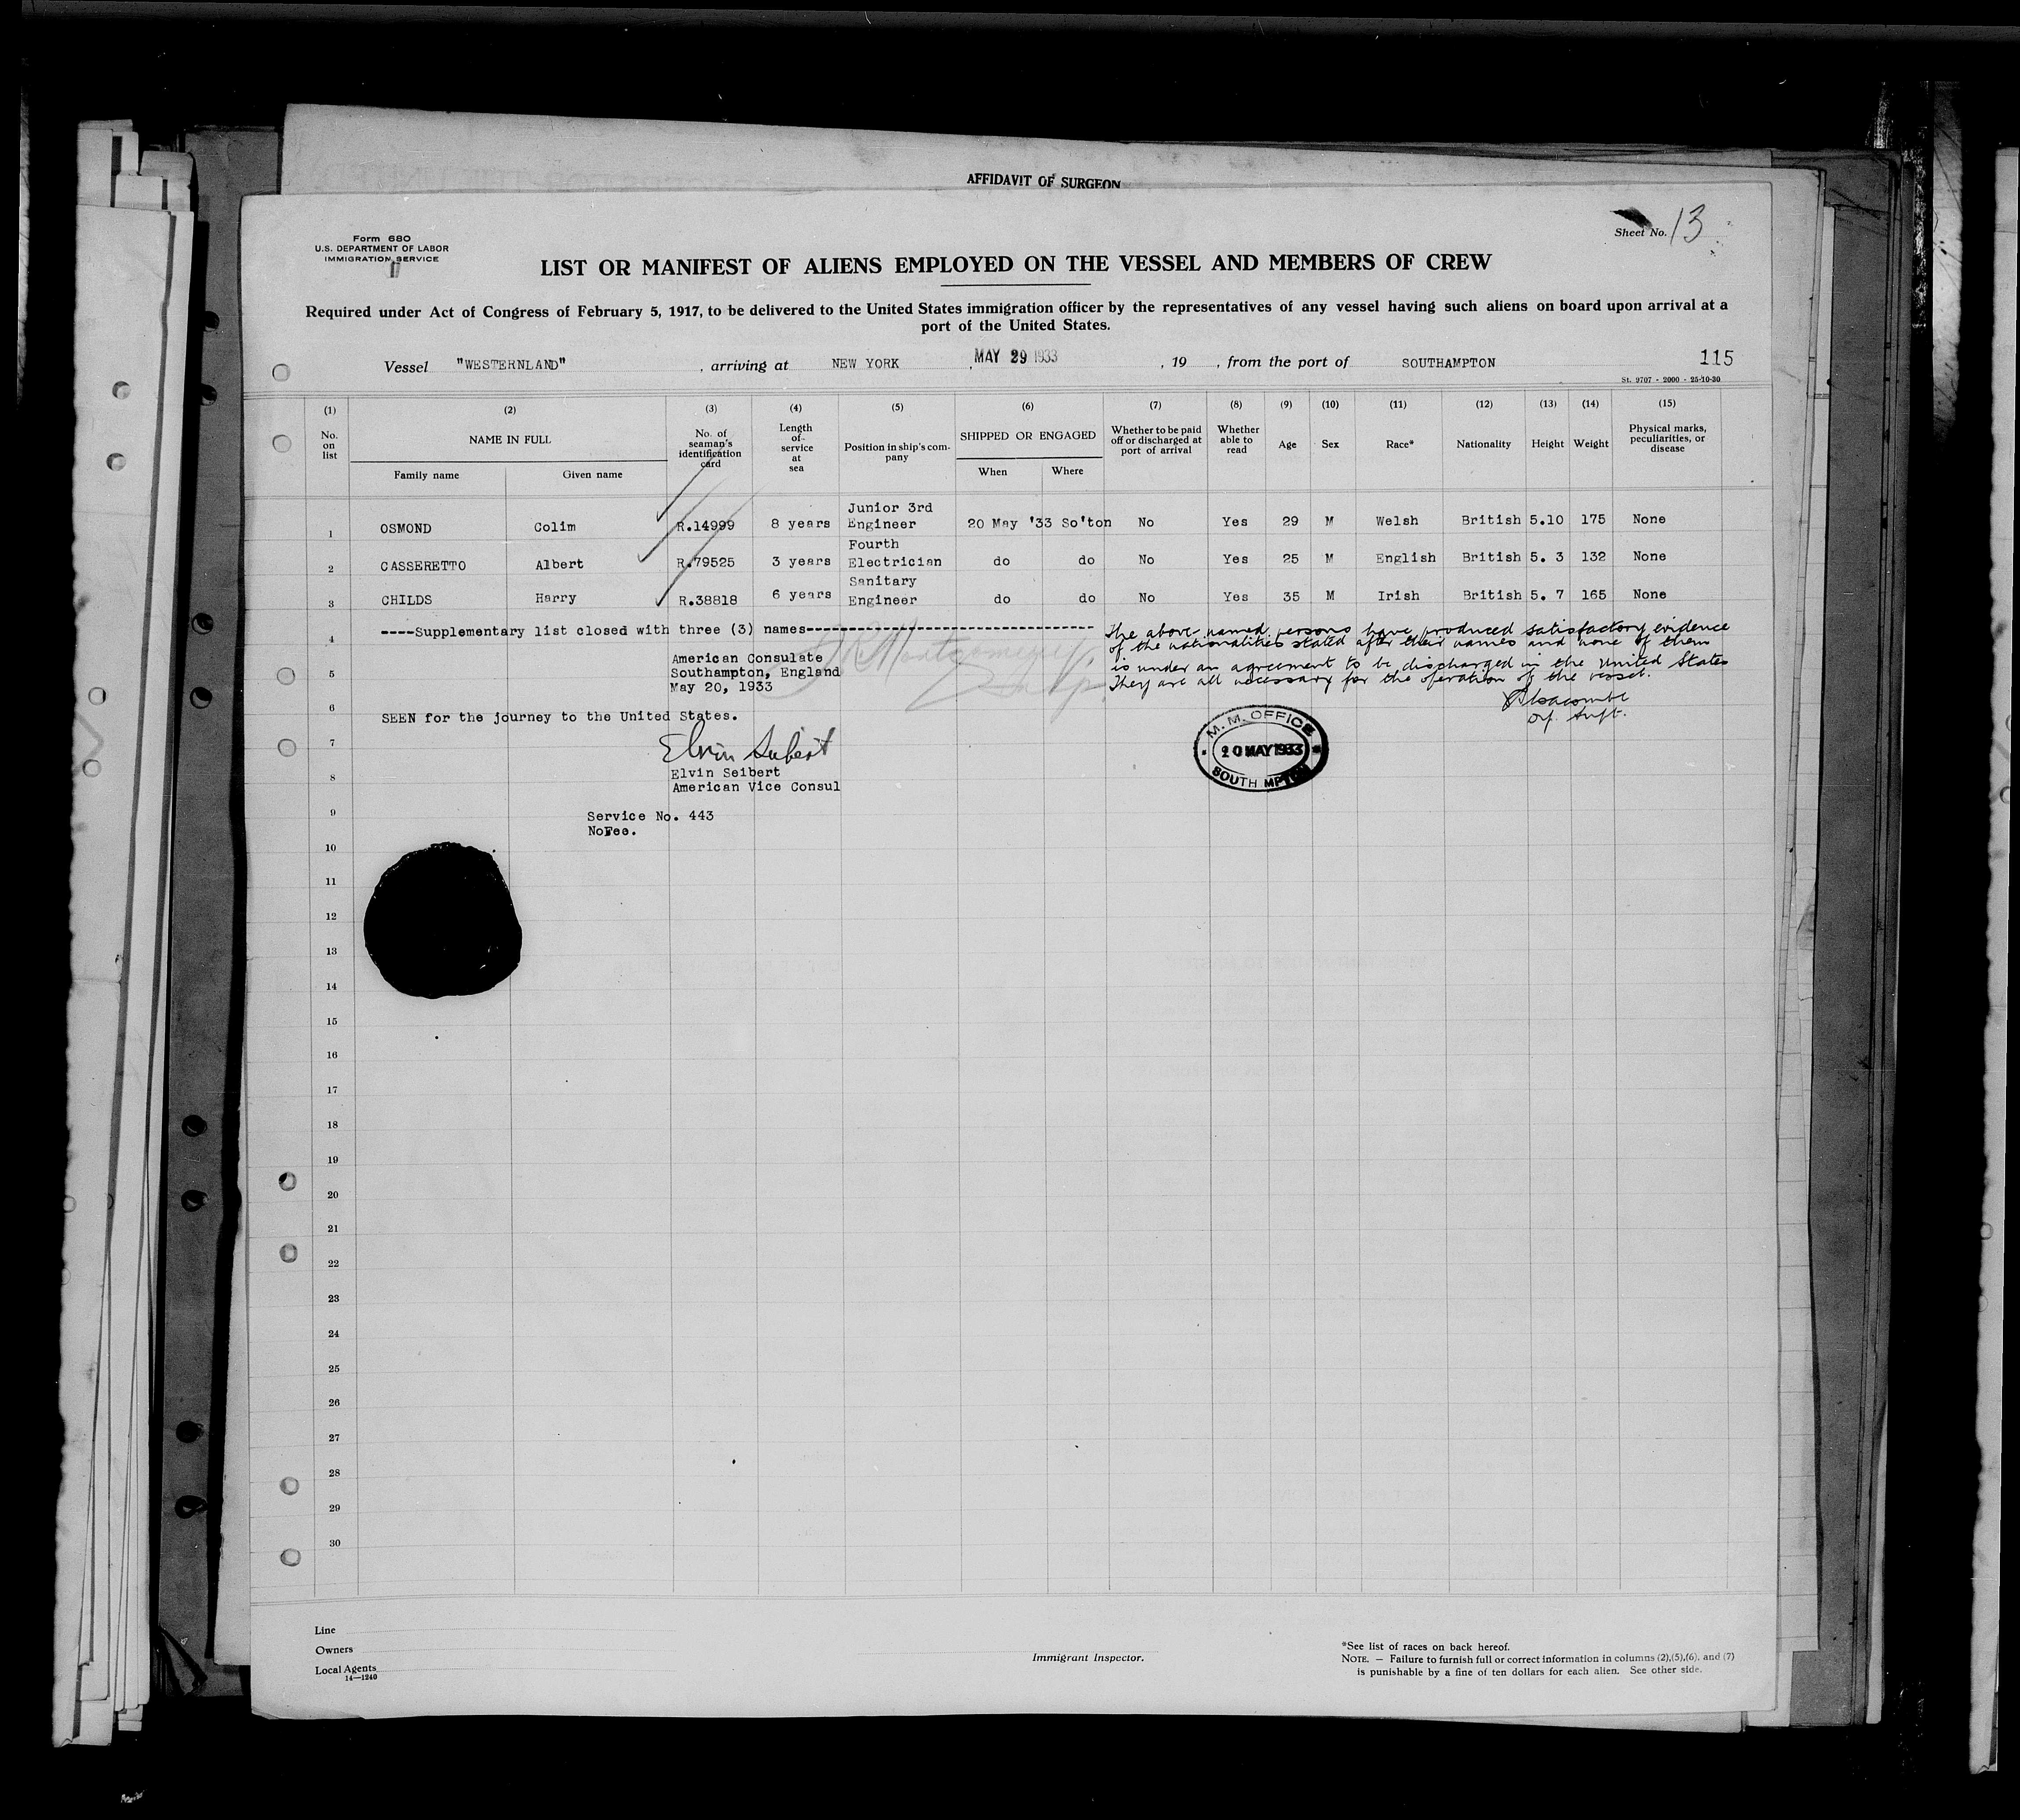 AFFIDAVIT OF SURGEON
Sheet No. 13
Form 680
U.S. DEPARTMENT OF LABOR
IMMIGRATION SERVICE
LIST OR MANIFEST OF ALIENS EMPLOYED ON THE VESSEL AND MEMBERS OF CREW
Required under Act of Congress of February 5, 1917, to be delivered to the United States immigration officer by the representatives of any vessel having such aliens on board upon arrival at a
port of the United States.
Vessel "WESTERNLAND", arriving at NEW YORK, MAY 29 1933, 19 , from the port of SOUTHAMPTON 115
St. 9707 - 2000 - 25-10-30
(1) (2) (3) (4) (5) (6) (7) (8) (9) (10) (11) (12) (13) (14) (15)
No. on list NAME IN FULL No. of seaman's identification card Length of service at sea Position in ship's company SHIPPED OR ENGAGED Whether to be paid off or discharged at port of arrival Whether able to read Age Sex Race* Nationality Height Weight Physical marks, peculiarities, or disease
Family name Given name When Where
1 OSMOND Colim R.14999 8 years Junior 3rd Engineer 20 May '33 So'ton No Yes 29 M Welsh British 5.10 175 None
2 CASSERETTO Albert R.79525 3 years Fourth Electrician do do No Yes 25 M English British 5. 3 132 None
3 CHILDS Harry R.38818 6 years Sanitary Engineer do do No Yes 35 M Irish British 5. 7 165 None
4 ----Supplementary list closed with three (3) names----
Montgomery
The above named persons have produced satisfactory evidence
of the nationalities stated after their names and none of them
is under an agreement to be discharged in the United States
They are all necessary for the operation of the vessel.
American Consulate
5 Southampton, England
May 20, 1933
6
SEEN for the journey to the United States.
7
Elvin Seibert
8 Elvin Seibert
American Vice Consul
M. M. OFFICE
20 MAY 1933
SOUTHAMPTON
9 Service No. 443
NoFee.
10
11
12
13
14
15
16
17
18
19
20
21
22
23
24
25
26
27
28
29
30
Line
Owners
Local Agents
14—1240
Immigrant Inspector.
*See list of races on back hereof.
NOTE. — Failure to furnish full or correct information in columns (2),(5),(6), and (7)
is punishable by a fine of ten dollars for each alien. See other side.